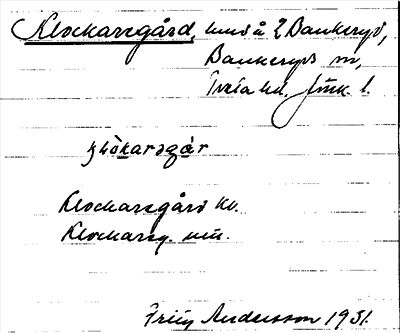 Klockaregård, hmd å 2 Bankeryd,
Bankeryds sn,
Tveta hd. Jönk. l.
Klockaregård kv.
Klockareg. mn.
Fritz Andersson 1931.